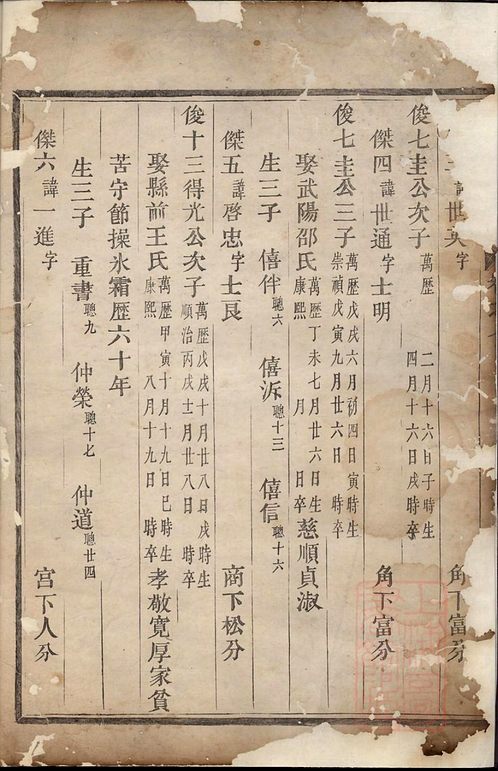 諱世英字 角下富分
俊七圭公次子 萬歷 二月十六日子時生 四月十六日戌時卒
傑四諱世通字士明 角下富分
俊七圭公三子 萬歷戊戌六月初四日寅時生 崇禎戊寅九月廿六日 時卒
娶武陽邵氏 萬歷丁未七月廿六日 生 康熙 月 日 卒 慈順貞淑
生三子 僖伴聰六 僖泝聰十三 僖信聰十六
傑五諱啓忠字士良 商下松分
俊十三得光公次子 萬歷戊戌十月廿八日戌時生 順治丙戌十二月廿八日 時卒
娶縣前王氏 萬歷甲寅十月十九日巳時生 康熙 八月十九日 時卒 孝敬寬厚家貧
苦守節操氷霜歷六十年
生三子 重書聰九 仲榮聰十七 仲道聰廿四
傑六諱一進字 宫下人分